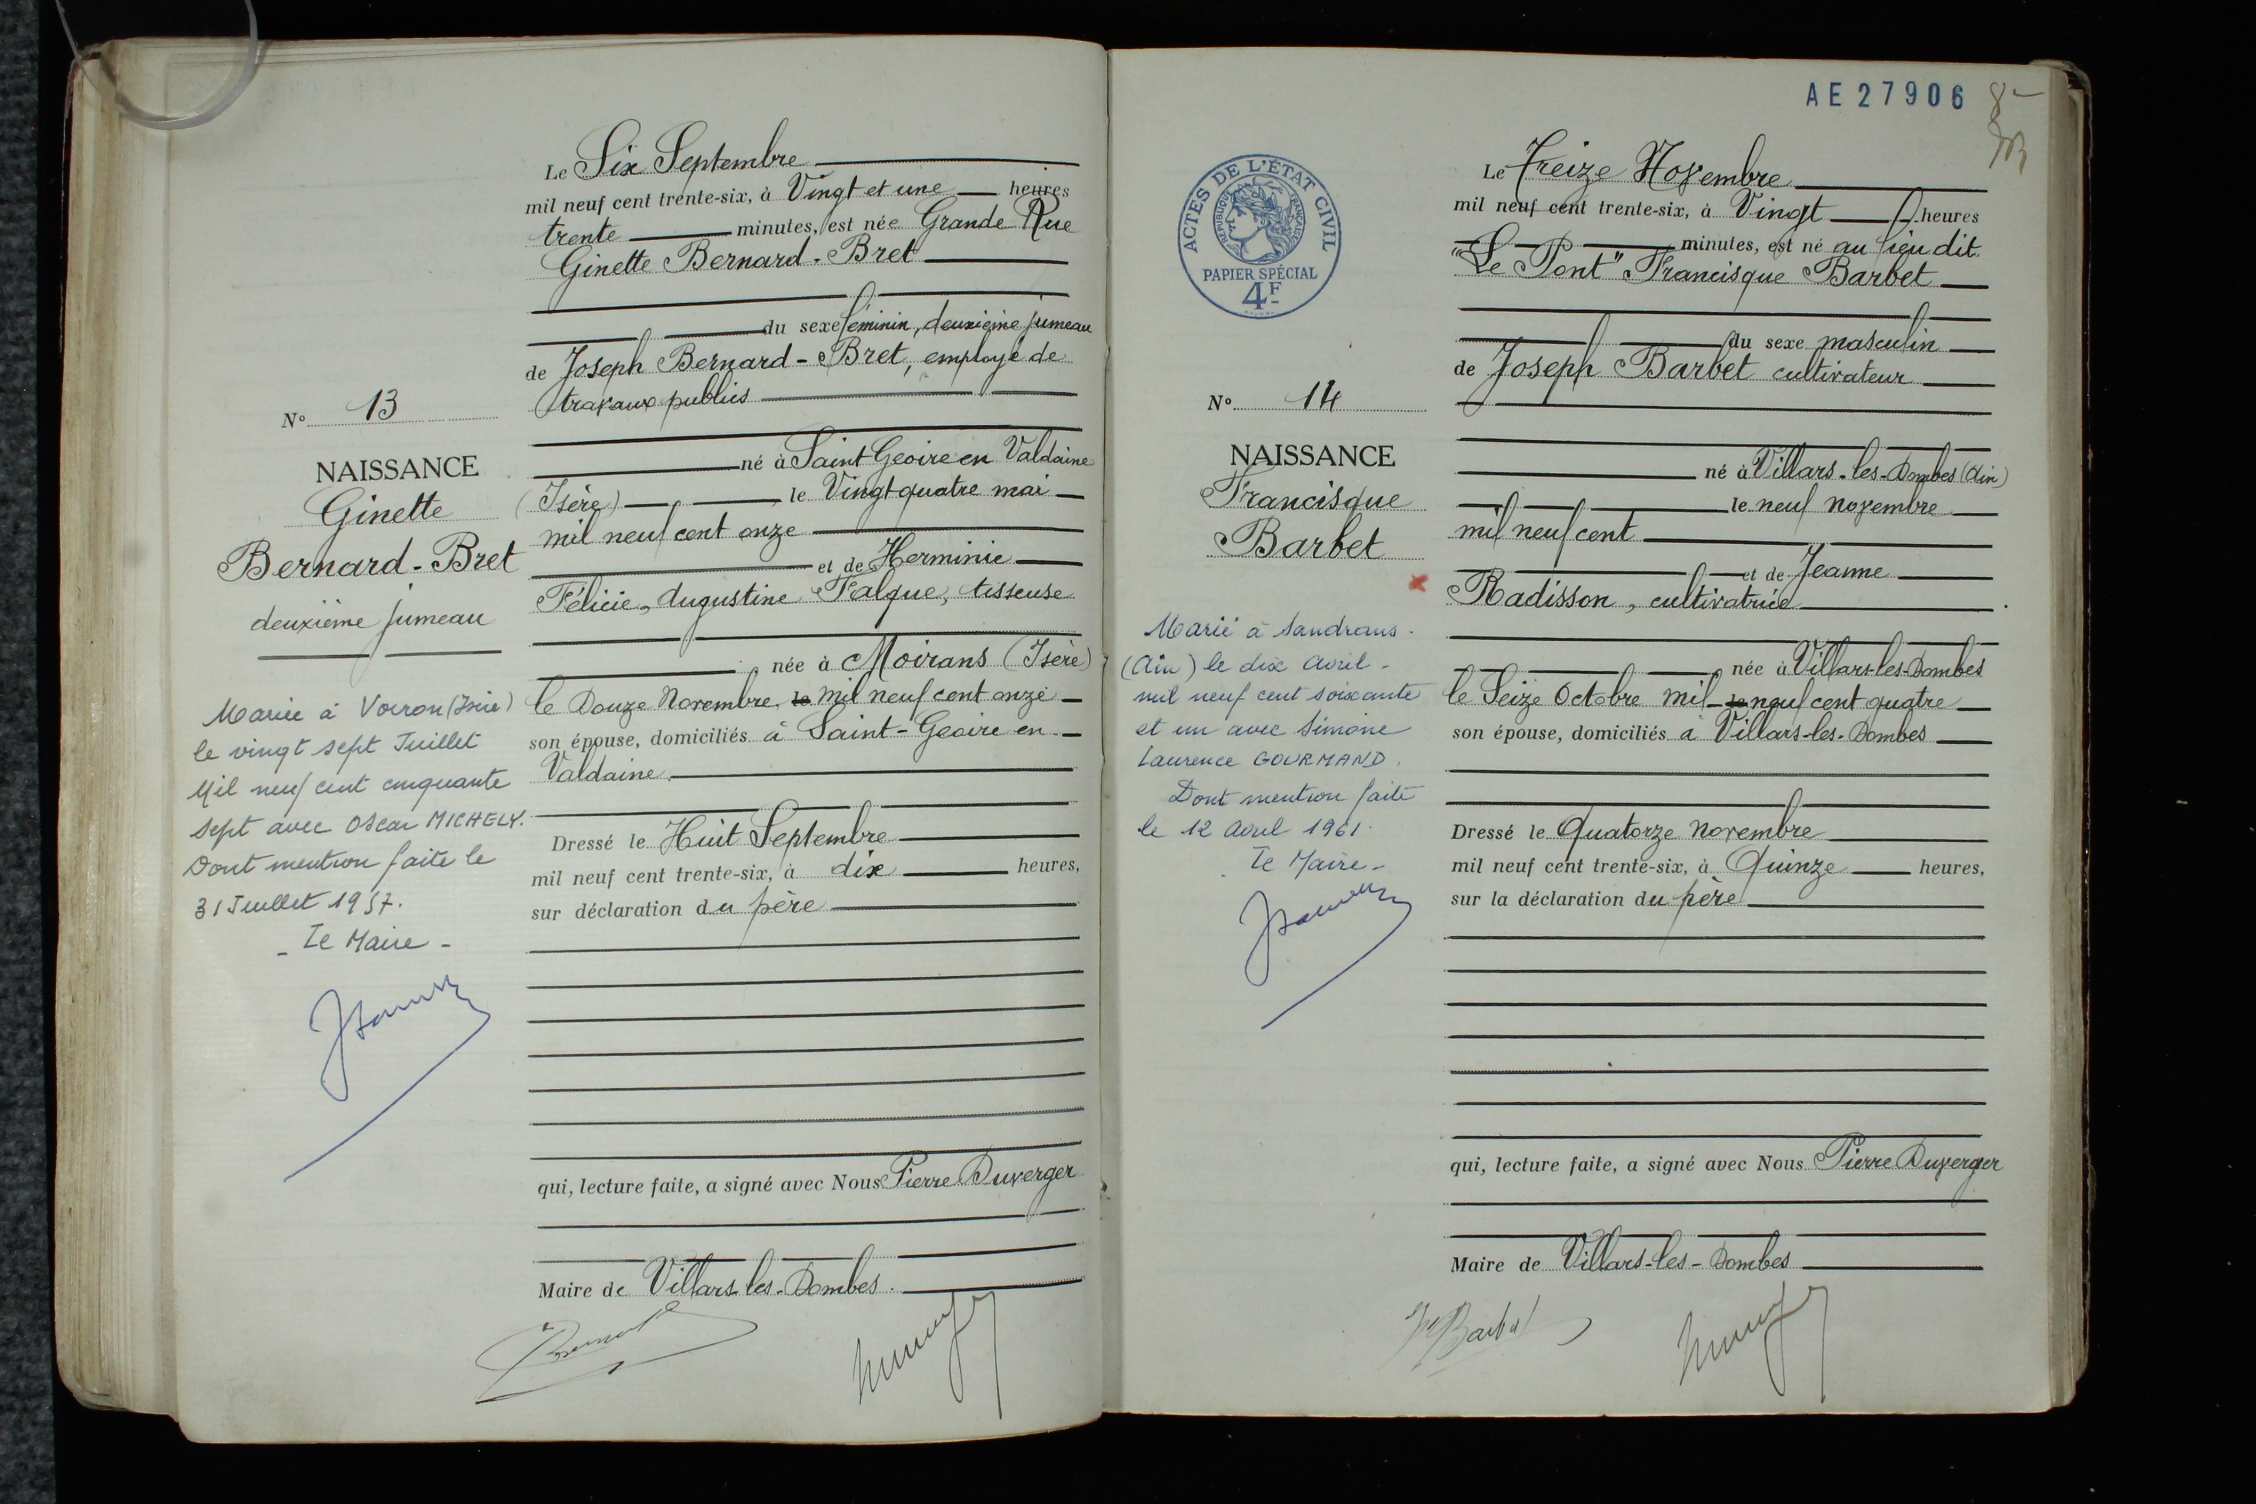 Le Six Septembre
mil neuf cent trente-six, à Vingt et une heures
trente minutes, est née Grande Rue
Ginette Bernard-Bret
du sexe féminin, deuxième jumeau
de Joseph Bernard-Bret, employé de
travaux publics
né à Saint Geoire en Valdaine
(Isère) le Vingt quatre mai
mil neuf cent onze
et de Herminie
Félicie, Augustine Falque, tisseuse
née à Moirans (Isère)
le Douze Novembre le mil neuf cent onze
son épouse, domiciliés à Saint-Geoire en
Valdaine
Dressé le Huit Septembre
mil neuf cent trente-six, à dix heures,
sur déclaration du père
qui, lecture faite, a signé avec Nous Pierre Duverger
Maire de Villars-les-Dombes
N° 13
NAISSANCE
Ginette
Bernard-Bret
deuxième jumeau
Mariée à Voiron (Isère)
le vingt sept Juillet
Mil neuf cent cinquante
sept avec Oscar MICHELY.
Dont mention faite le
31 Juillet 1957.
- Le Maire -
AE27906
Le Treize Novembre
mil neuf cent trente-six, à Vingt heures
minutes, est né au lieu dit
"Le Pont" Francisque Barbet
du sexe masculin
de Joseph Barbet cultivateur
né à Villars-les-Dombes (Ain)
le neuf novembre
mil neuf cent
et de Jeanne
Radisson, cultivatrice
née à Villars-les-Dombes
le Seize Octobre mil le neuf cent quatre
son épouse, domiciliés à Villars-les-Dombes
Dressé le Quatorze Novembre
mil neuf cent trente-six, à Quinze heures,
sur la déclaration du père
qui, lecture faite, a signé avec Nous Pierre Duverger
Maire de Villars-les-Dombes
Barbet
ACTES DE L'ÉTAT CIVIL
RÉPUBLIQUE FRANÇAISE
PAPIER SPÉCIAL
4F
N° 14
NAISSANCE
Francisque
Barbet
Marié à Sandrans
(Ain) le dix avril
mil neuf cent soixante
et un avec Simone
Laurence GOURMAND.
Dont mention faite
le 12 Avril 1961.
Le Maire -